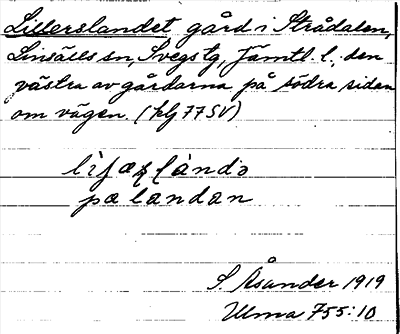 Lillerslandet gård i Strådalen,
Linsälls sn, Svegs tg, Jämtl. l., den
västra av gårdarna på södra sidan
om vägen. (klj 77 SV)
pæ landan
S. Åsander 1919
Ulma 755:10